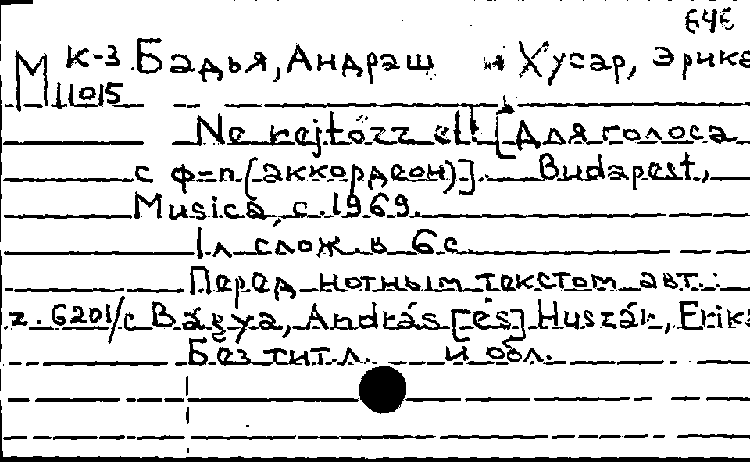 646
М К-3 Бадья, Андраш и Хусар, Эрика
11015
Ne rejtőzz el! [Для голоса
с ф-п (аккордеон)]. Budapest,
Musica, c. 1969.
1 л слож. в 6 с
Перед нотным текстом авт.:
z. 6201/c Bágya, András [és] Huszár, Erika
Без тит. л. и обл.